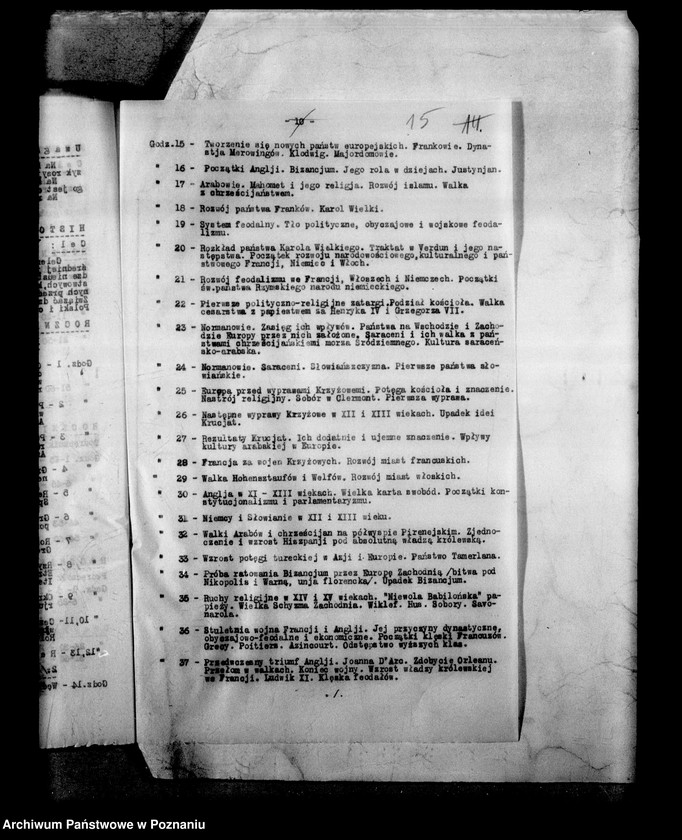 - 10 -
15
Godz.15 - Tworzenie się nowych państw europejskich. Frankowie. Dyna-
stja Merowingów. Klodwig. Majordomowie.
" 16 - Początki Anglji. Bizancjum. Jego rola w dziejach. Justynjan.
" 17 - Arabowie. Mahomet i jego religja. Rozwój islamu. Walka
z chrześcijaństwem.
" 18 - Rozwój państwa Franków. Karol Wielki.
" 19 - System feodalny. Tło polityczne, obyczajowe i wojskowe feoda-
lizmu.
" 20 - Rozkład państwa Karola Wielkiego. Traktat w Verdun i jego na-
stępstwa. Początek rozwoju narodowościowego,kulturalnego i pań-
stwowego Francji, Niemiec i Włoch.
" 21 - Rozwój feodalizmu we Francji, Włoszech i Niemczech. Początki
św.państwa Rzymskiego narodu niemieckiego.
" 22 - Pierwsze polityczno-religijne zatargi.Podział kościoła. Walka
cesarstwa z papiestwem za Henryka IV i Grzegorza VII.
" 23 - Normanowie. Zasięg ich wpływów. Państwa na Wschodzie i Zacho-
dzie Europy przez nich założone. Saraceni i ich walka z pań-
stwami chrześcijańskiemi morza Śródziemnego. Kultura saraceń-
sko-arabska.
" 24 - Normanowie. Saraceni. Słowiańszczyzna. Pierwsze państwa sło-
wiańskie.
" 25 - Europa przed wyprawami Krzyżowemi. Potęga kościoła i znaczenie.
Nastrój religijny. Sobór w Clermont. Pierwsza wyprawa.
" 26 - Następne wyprawy Krzyżowe w XII i XIII wiekach. Upadek idei
Krucjat.
" 27 - Rezultaty Krucjat. Ich dodatnie i ujemne znaczenie. Wpływy
kultury arabskiej w Europie.
" 28 - Francja za wojen Krzyżowych. Rozwój miast francuskich.
" 29 - Walka Hohensztaufów i Welfów. Rozwój miast włoskich.
" 30 - Anglja w XI - XIII wiekach. Wielka karta swobód. Początki kon-
stytucjonalizmu i parlamentaryzmu.
" 31 - Niemcy i Słowianie w XII i XIII wieku.
" 32 - Walki Arabów i chrześcijan na półwyspie Pirenejskim. Zjedno-
czenie i wzrost Hiszpanji pod absolutną władzą królewską.
" 33 - Wzrost potęgi tureckiej w Azji i Europie. Państwo Tamerlana.
" 34 - Próba ratowania Bizancjum przez Europę Zachodnią /bitwa pod
Nikopolis i Warną, unja florencka/. Upadek Bizancjum.
" 35 - Ruchy religijne w XIV i XV wiekach. "Niewola Babilońska" pa-
pieży. Wielka Schyzma Zachodnia. Wiklef. Hus. Sobory. Savo-
narola.
" 36 - Stuletnia wojna Francji i Anglji. Jej przyczyny dynastyczne,
obyczajowo-feodalne i ekonomiczne. Początki klęski Francuzów.
Crecy. Poitiers. Azincourt. Odstępstwo wyższych klas.
" 37 - Przedwczesny triumf Anglji. Joanna D'Arc. Zdobycie Orleanu.
Przełom w walkach. Koniec wojny. Wzrost władzy królewskiej
we Francji. Ludwik XI. Klęska feodałów.
./.
Archiwum Państwowe w Poznaniu